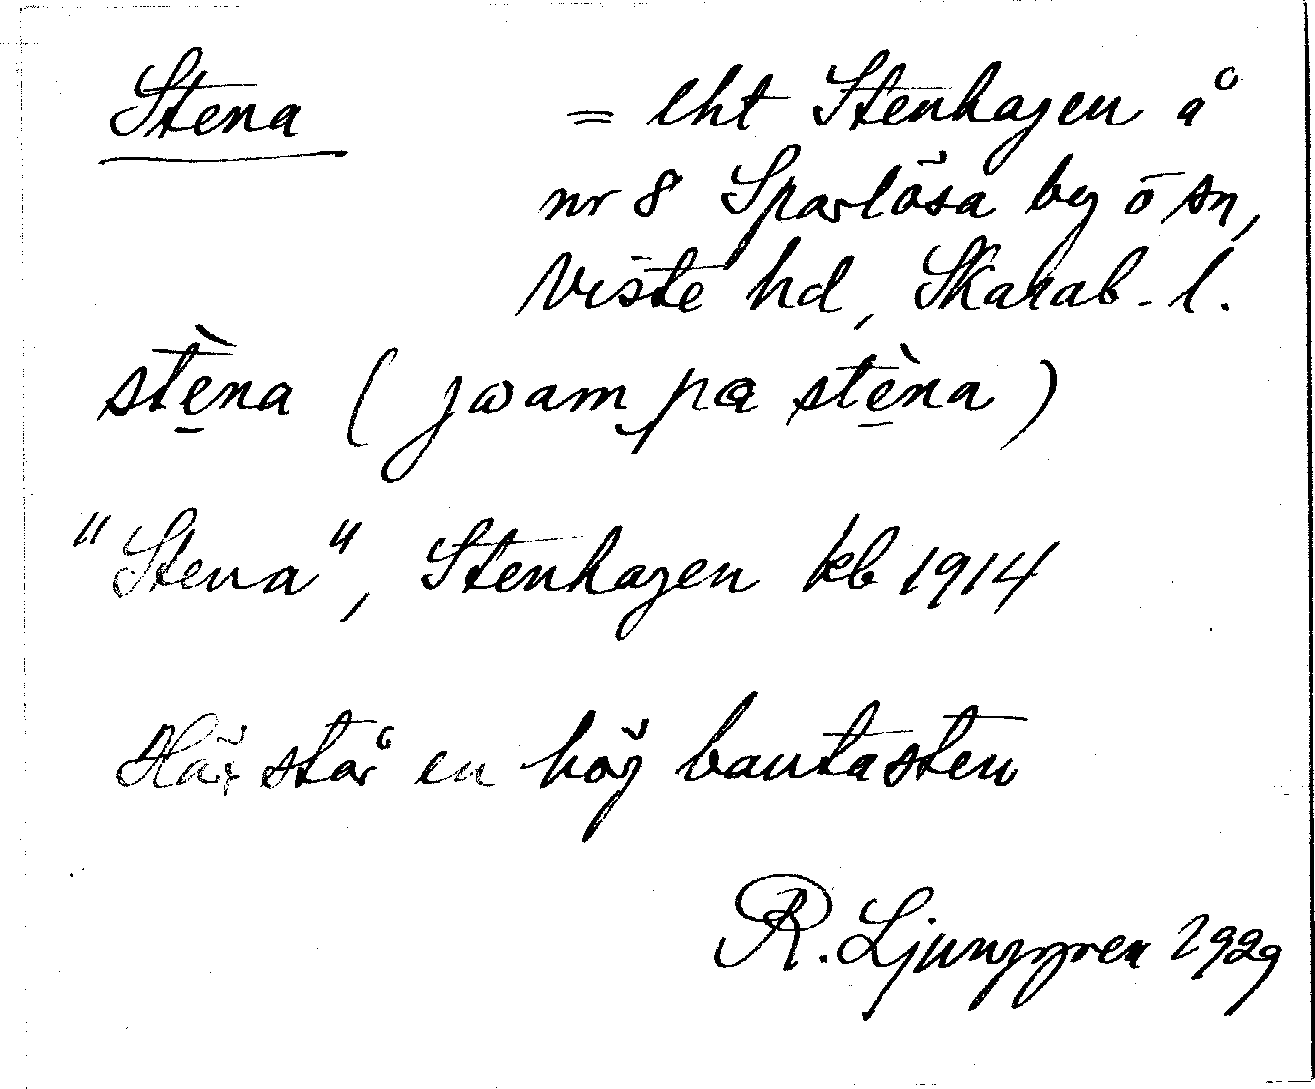 Stena = lht Stenhagen å
nr 8 Sparlösa by o sn,
Viste hd, Skarab. l.
stèna (jωam pa stèna)
"Stena", Stenhagen kb 1914
Här står en hög bautasten
R. Ljunggren 1929